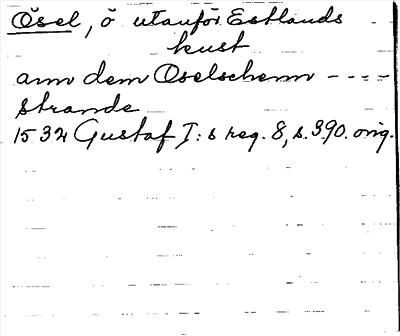 Ösel, ö utanför Estlands
kust
ann dem Oselschenn - - - -
strande
1532 Gustaf I:s reg. 8, s. 390. orig.